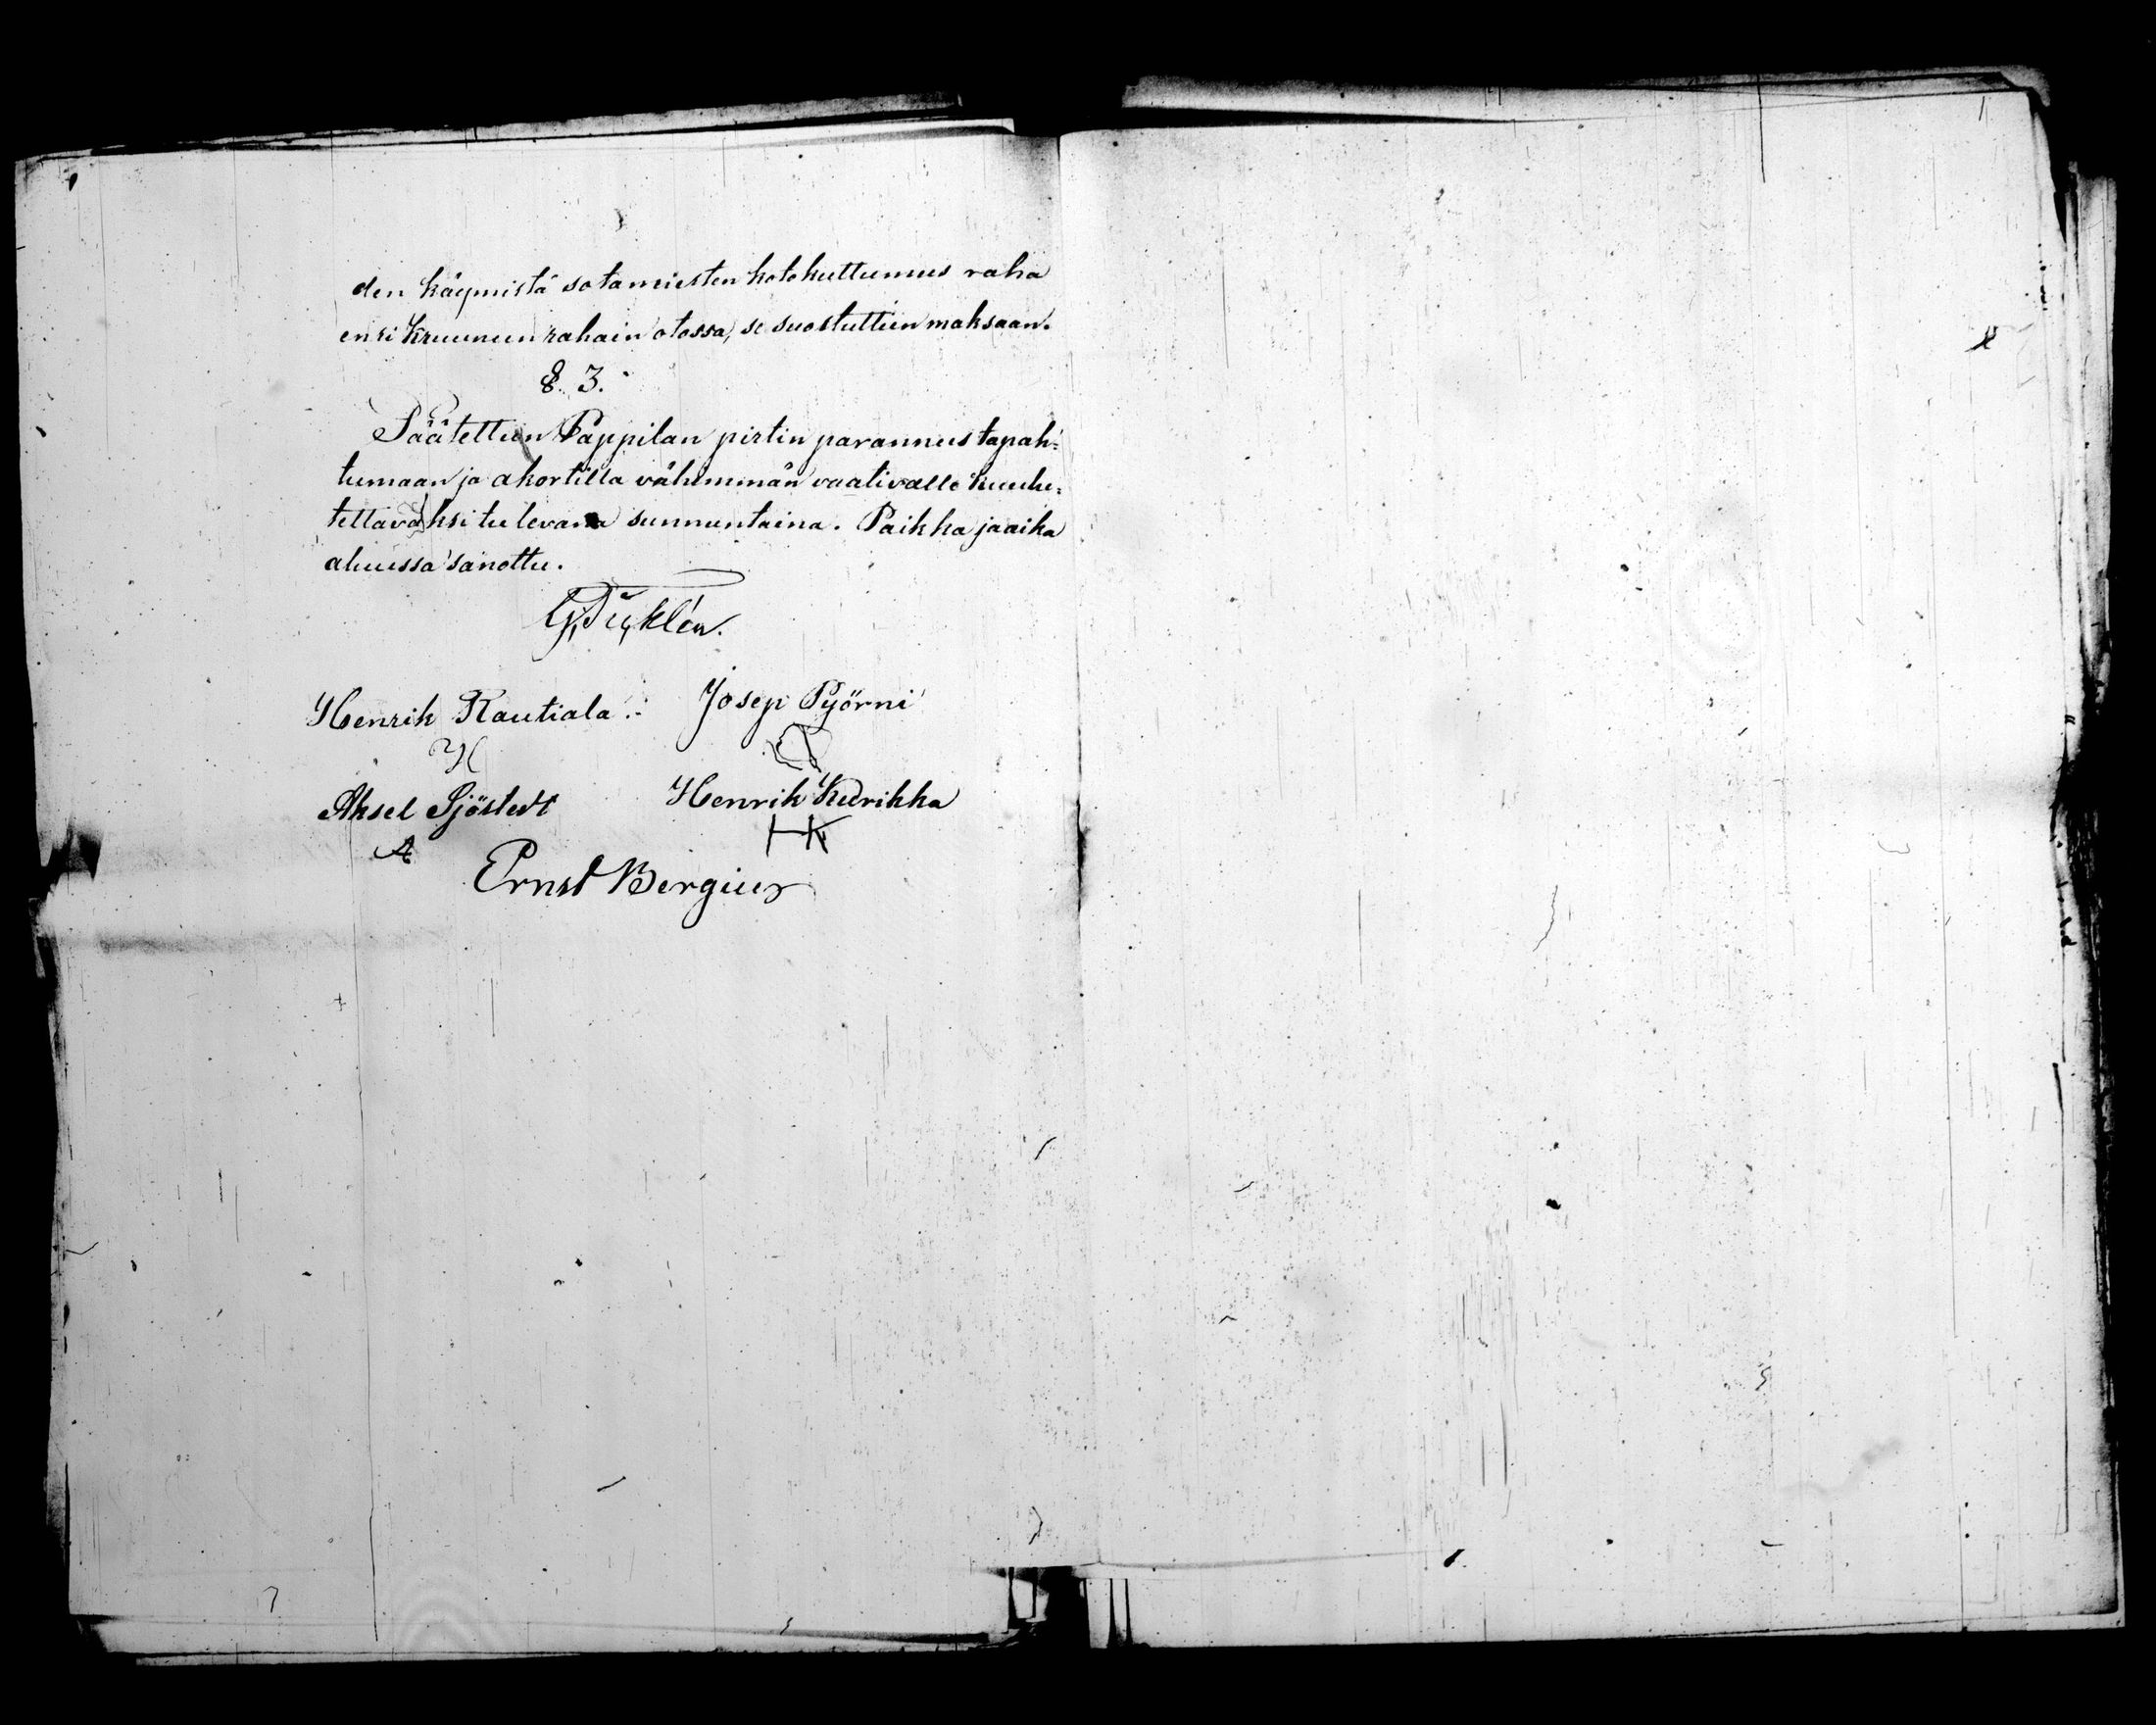 den käymistä sotamiesten kotokuttumus raha
ensi kruunun rahain otossa, se suostuttiin maksaan.
§. 3.
Päätettiin Pappilan pirtin parannus tapah=
tumaan ja akortilla vähimmän vaativalle kuulu=
tettavaksi tulevana sunnuntaina. Paikka ja aika
aluussa sanottu.
Henrik Rautiala. Josep Pyörni
H
Aksel Sjöstedt Henrik Kurikka
A HK
Ernst Bergius